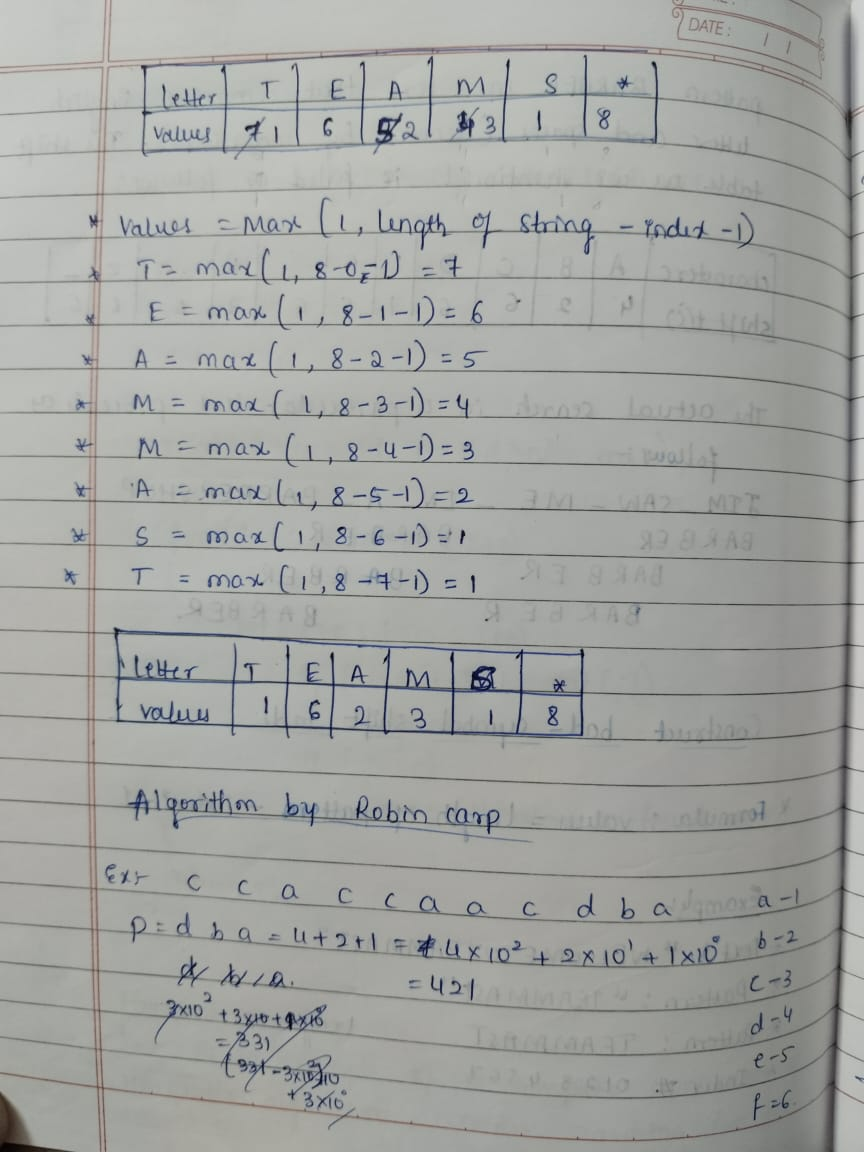 DATE: / /
Letter T E A M S *
Values 7 1 6 5 2 4 3 1 8
* Values = Max (1, length of string - index - 1)
* T = max(1, 8-0-1) = 7
* E = max(1, 8-1-1) = 6
* A = max(1, 8-2-1) = 5
* M = max(1, 8-3-1) = 4
* M = max(1, 8-4-1) = 3
* A = max(1, 8-5-1) = 2
* S = max(1, 8-6-1) = 1
* T = max(1, 8-7-1) = 1
Letter T E A M S *
values 1 6 2 3 1 8
Algorithm by Robin carp
Ex:- c c a c c a a c d b a a-1
P = d b a = 4+2+1 = 4×10² + 2×10¹ + 1×10⁰ b-2
d b a. = 421 c-3
3×10² + 3×10 + 1×10⁰ d-4
= 331 e-5
[331 - 3×10²]10
+ 3×10⁰ f=6